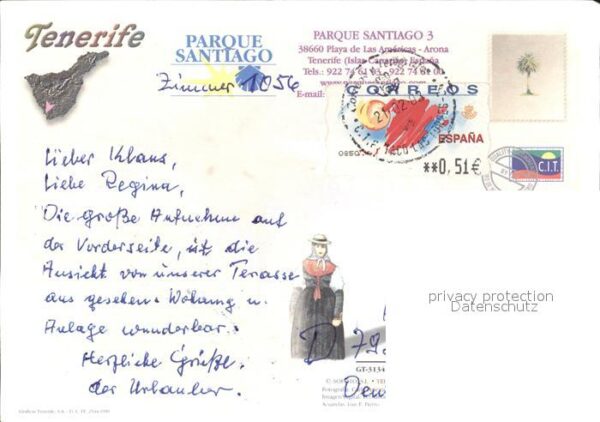 Tenerife
PARQUE
SANTIAGO
Zimmer 1056
PARQUE SANTIAGO 3
38660 Playa de Las Américas - Arona
Tenerife (Islas Canarias) España
Tels.: 922 74 61 03, 922 74 61 00
E-mail:
CORREOS
ESPAÑA
**0,51€
C.I.T.
Lieber Klaus,
Liebe Regina,
Die große Aufnahme auf
der Vorderseite, ist die
Ansicht von unserer Terasse
aus gesehen. Wohnung u.
Anlage wunderbar.
Herzliche Grüße.
der Urlauber.
privacy protection
Datenschutz
D 79
GT-3134